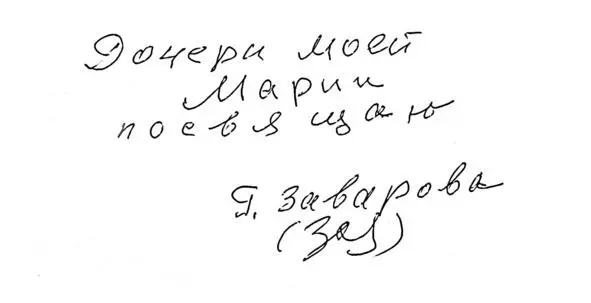 Дочери моей
Марии
посвящаю
Г. Заварова